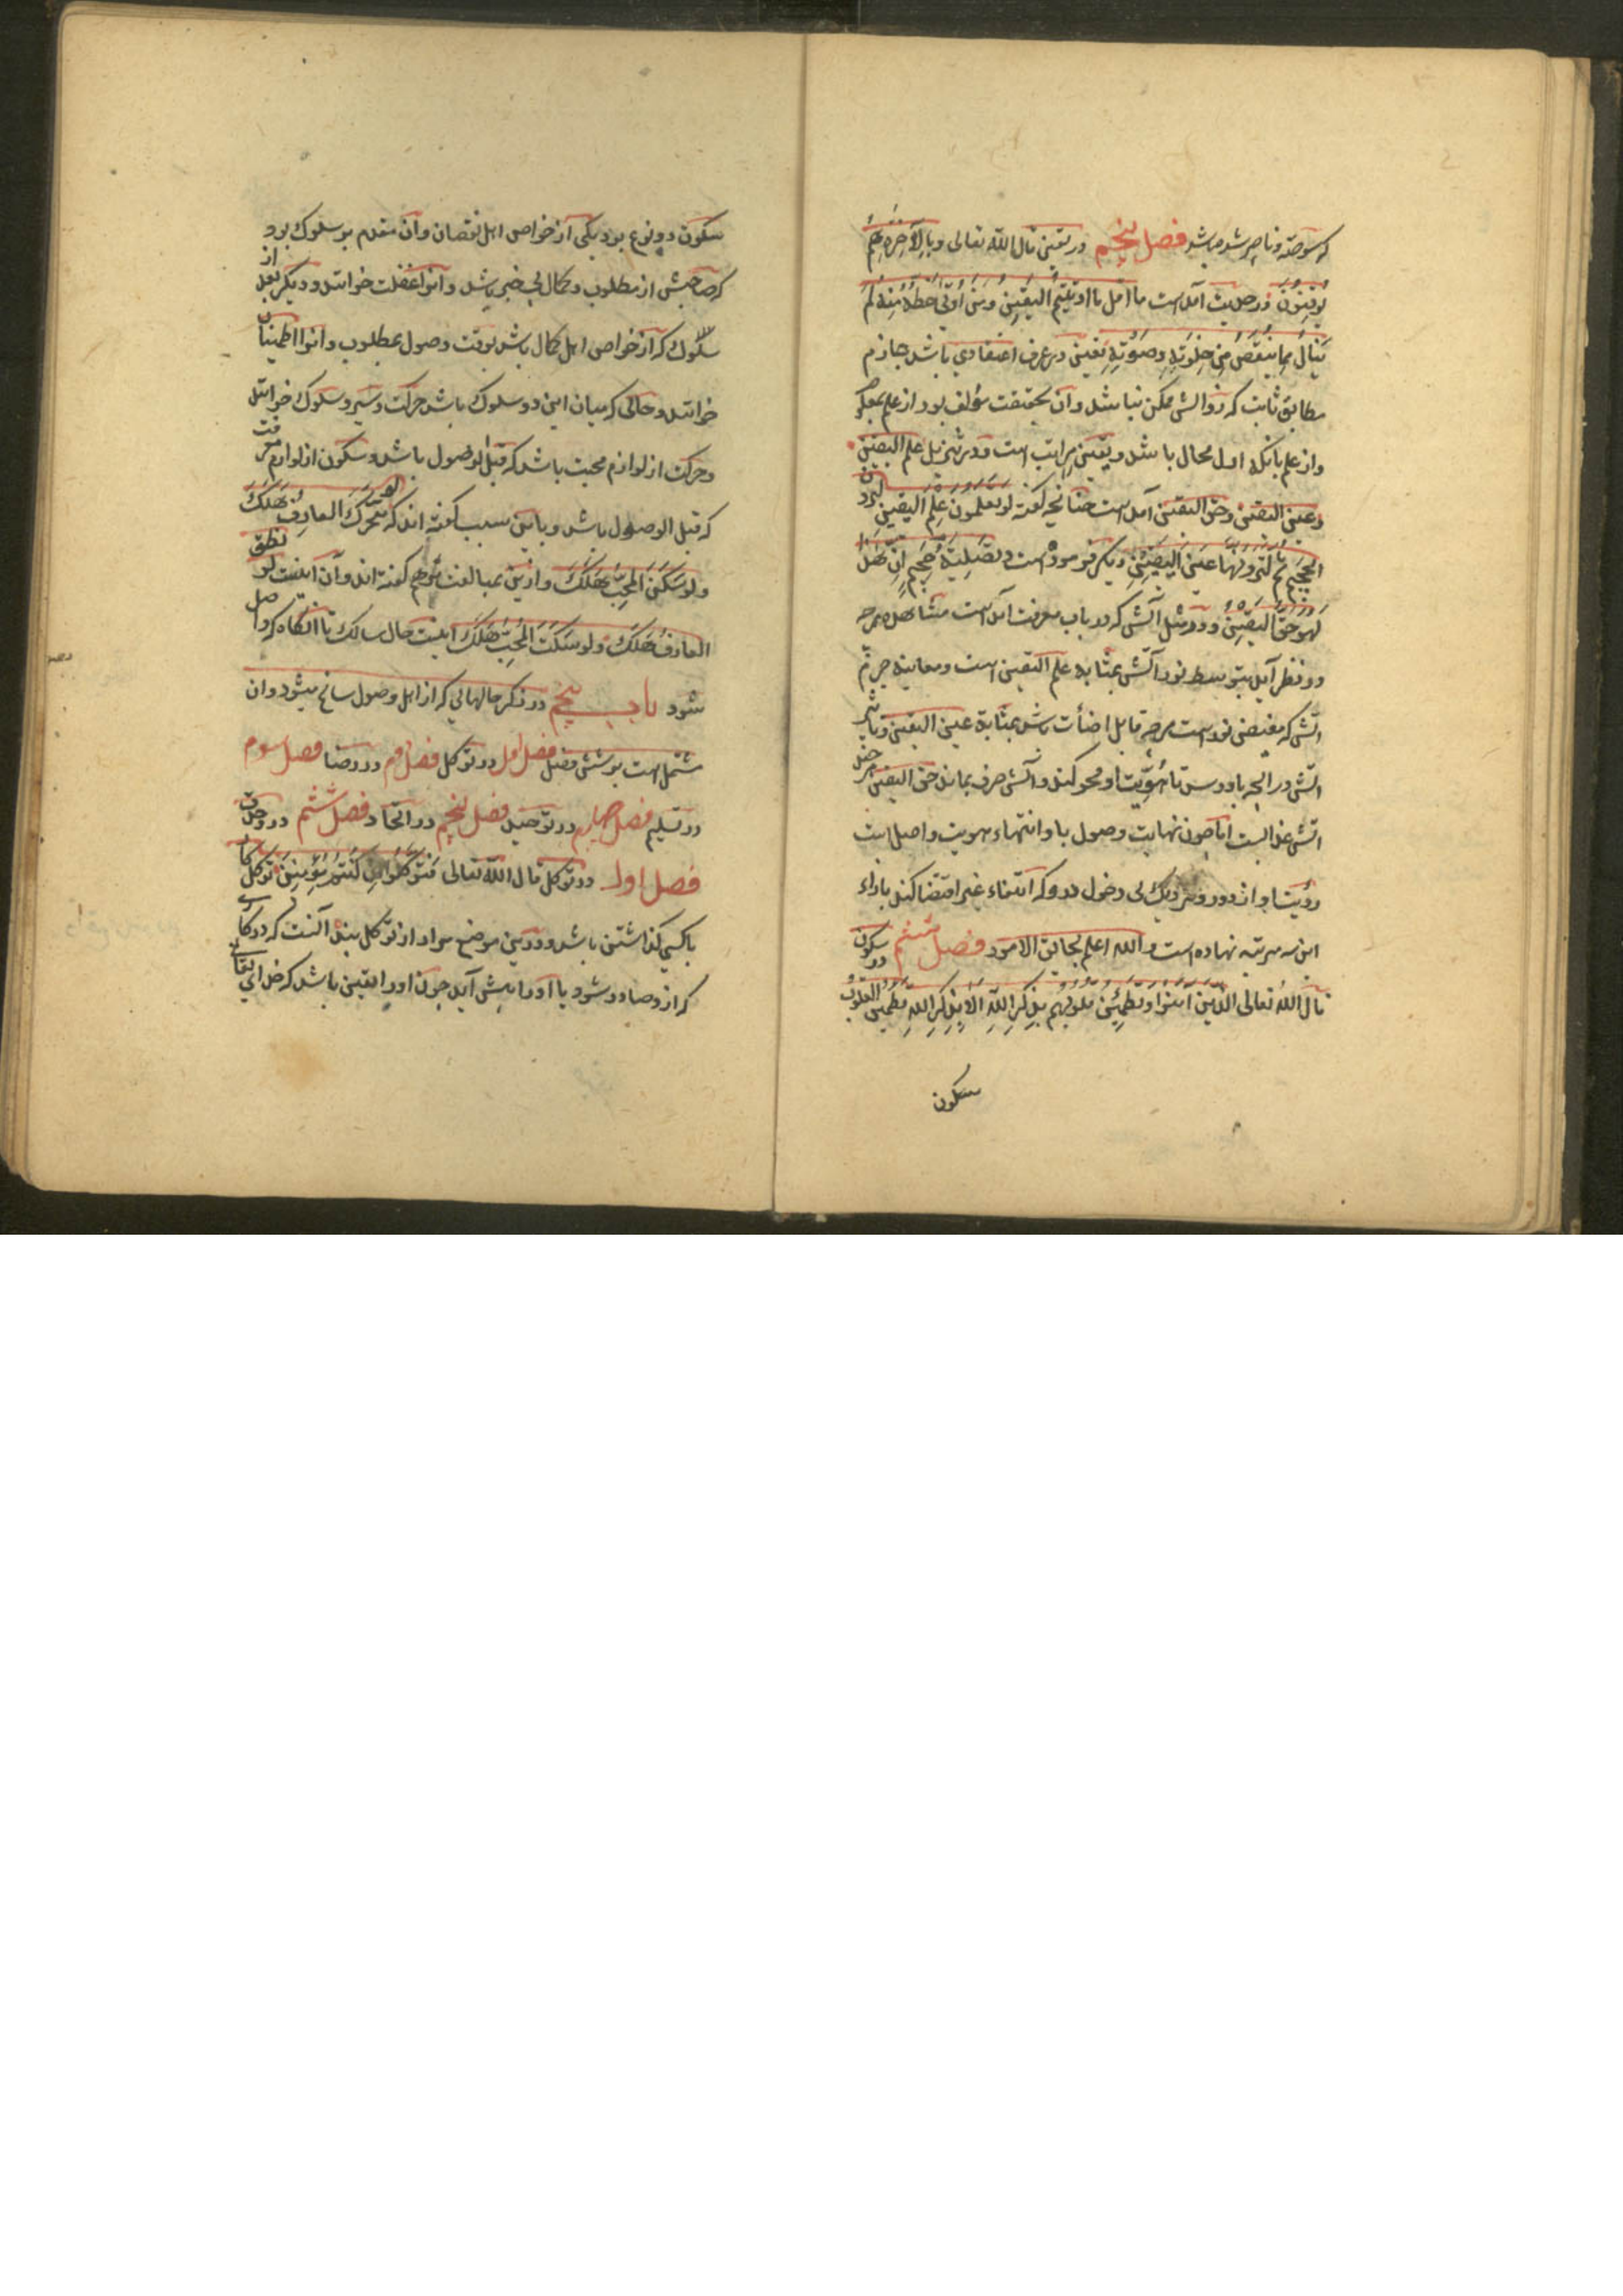 که سوخته و ناچیز شد میباشد فصل پنجم در یقین قال الله تعالی وبالآخرة هم
یوقنون در حدیث آمده است ما اقل ما اوتیتم الیقین ومن اوتی حظه منه لم
یبال بما ینقص من صلوته وصومه یقین در عرف اعتقادی باشد جازم
مطابق ثابت که زوالش ممکن نباشد و آن بحقیقت مؤلف بود از علم بمعلوم
و از علم بآنکه اول محال باشد و یقین مراتب است و در تنزیل علم الیقین
وعین الیقین وحق الیقین آمده است چنانچه گفته لو تعلمون علم الیقین لترون
الجحیم ثم لترونها عین الیقین و دیگر فرموده است وتصلیة جحیم ان هذا
لهو حق الیقین و در مثل آتش که در باب معرفت آمده است مشاهده هرچه
در نظر آید بتوسط نور آتش بمثابه علم الیقین است و معاینه جرم
آتش که مفیض نور است بر هرچه قابل اضأت باشد بمثابة عین الیقین و تاثیر
آتش در انچه باو رسد تا هویت او محو کند و آتش صرف بماند حق الیقین
آتش عذابست اما چون نهایت وصول باو انتهاء هویت واصل است
رؤیت او از دور و نزدیک بی دخول درو که انتفاء غیر اقتضا کند بازاء
این سه مرتبه نهاده است والله اعلم بحقایق الامور فصل ششم در سکون
قال الله تعالی الذین آمنوا وتطمئن قلوبهم بذکر الله الا بذکر الله تطمئن القلوب
سکون
سکون دو نوع بود یکی از خواص اهل نقصان و آن مقدم بر سلوک بود
که صاحبش از مطلوب و کمال بی خبر باشد و آنرا غفلت خوانند و دیگر بعد از
سلوک که از خواص اهل کمال باشد بوقت وصول بمطلوب و آنرا اطمینان
خوانند و حالی که میان این دو سلوک باشد حرکت و سیر و سلوک خوانند
و حرکت از لوازم محبت باشد که قبل الوصول باشد و سکون از لوازم معرفت
که قبل الوصول باشد و باین سبب گفته اند که لو تحرک العارف هلک
ولو سکن المحب هلک و ازین بمبالغت تر هم گفته اند و آن اینست لو نطق
العارف هلک ولو سکت المحب هلک اینست حال سالک تا آنگاه که واصل
شود باب پنجم در ذکر حالهائی که از اهل وصول سانح میشود و آن
مشتمل است بر شش فصل فصل اول در توکل فصل دوم در رضا فصل سوم
در تسلیم فصل چهارم در توحید فصل پنجم در اتحاد فصل ششم در وحدت
فصل اول در توکل قال الله تعالی فتوکلوا ان کنتم مؤمنین توکل کار
باکسی گذاشتن باشد و درین موضع مراد از توکل بنده آنست که در کاری
که ازو صادر شود یا اورا پیش آید چون اورا یقین باشد که خدای تعالی